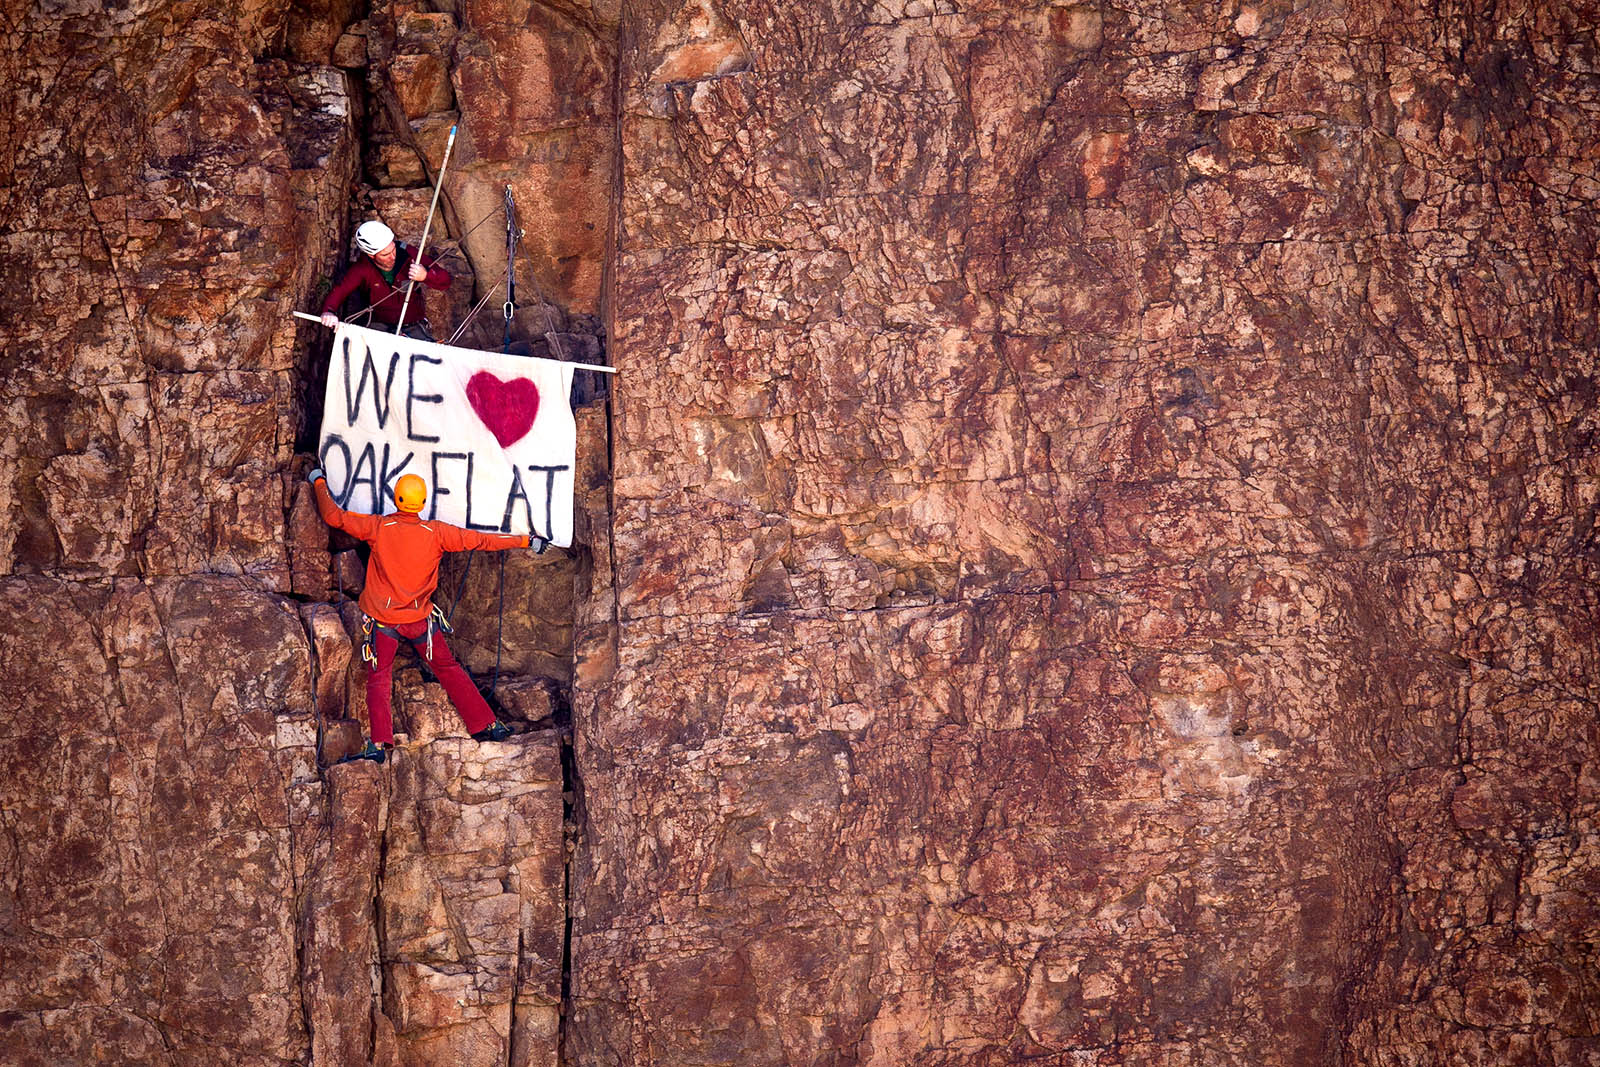 WE ♥
OAK FLAT